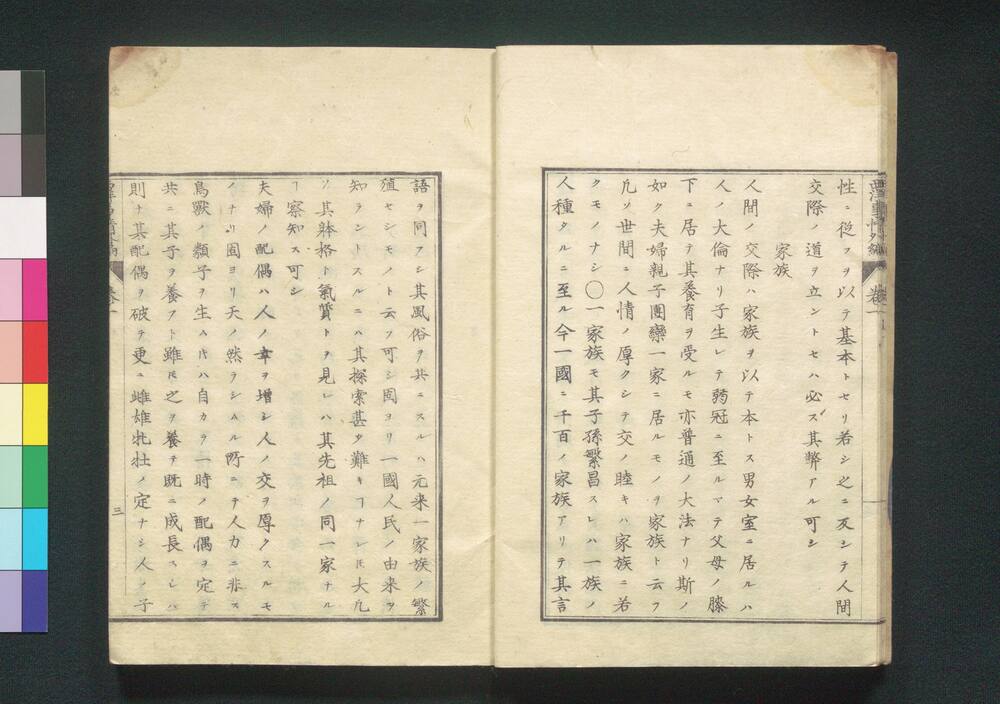 性ニ從フヲ以テ基本トセリ若シ之ニ反シテ人間
交際ノ道ヲ立ントセハ必ス其弊アル可シ
家族
人間ノ交際ハ家族ヲ以テ本トス男女室ニ居ルハ
人ノ大倫ナリ子生レテ弱冠ニ至ルマテ父母ノ膝
下ニ居テ其養育ヲ受ルモ亦普通ノ大法ナリ斯ノ
如ク夫婦親子團欒一家ニ居ルモノヲ家族ト云フ
凡ソ世間ニ人情ノ厚クシテ交ノ睦キハ家族ニ若
クモノナシ〇一家族モ其子孫繁昌スレハ一族ノ
人種タルニ至ル今一國ニ千百ノ家族アリテ其言
語ヲ同フシ其風俗ヲ共ニスルハ元来一家族ノ繁
殖セシモノト云フ可シ固ヨリ一國人民ノ由来ヲ
知ラントスルニハ其探索甚タ難キヿナレ𪜈大凡
ソ其躰格ト氣質トヲ見レハ其先祖ノ同一家ナル
ヿ察知ス可シ
夫婦ノ配偶ハ人ノ幸ヲ増シ人ノ交ヲ厚クスルモ
ノナリ固ヨリ天ノ然ラシムル所ニテ人力ニ非ス
鳥獸ノ類子ヲ生ヘハ自カラ一時ノ配偶ヲ定テ
共ニ其子ヲ養フト雖𪜈之ヲ養テ既ニ成長スレハ
則ナ其配偶ヲ破テ更ニ雌雄牝牡ノ定ナシ人ノ子
三